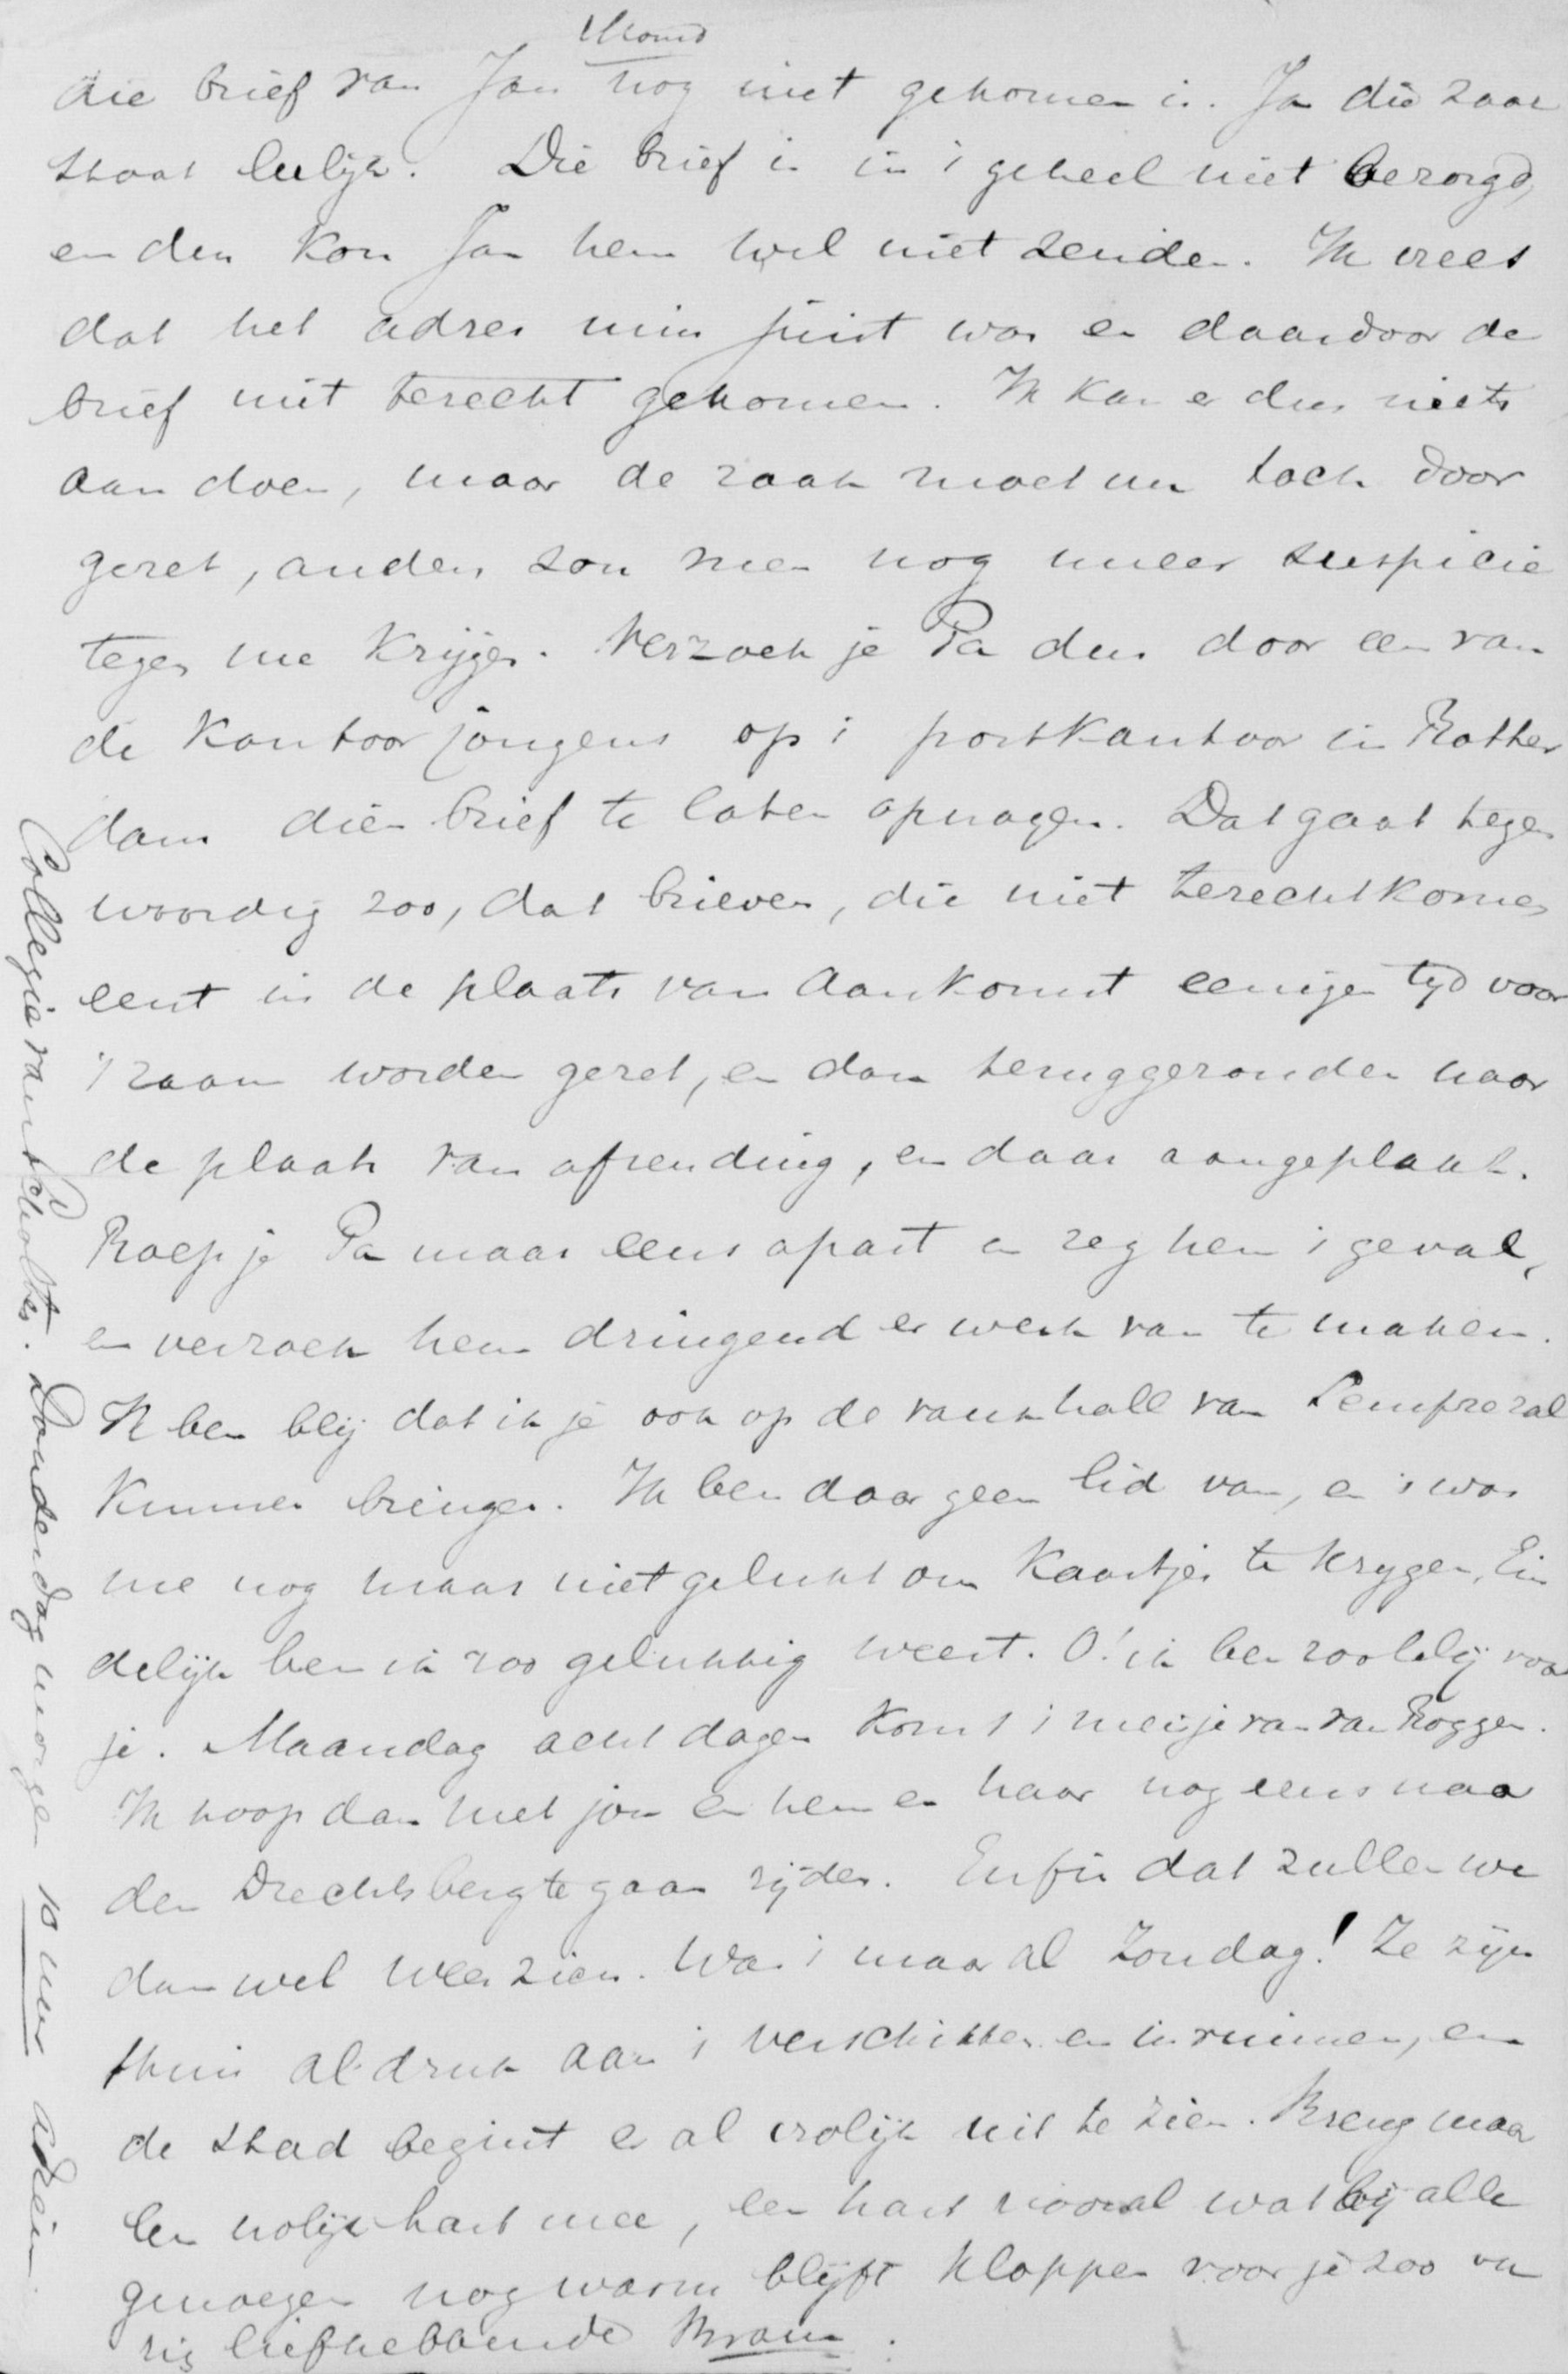 die brief van Jan nog niet gekomen is. Ja die zaak
staat leelijk. Die brief is in 't geheel niet bezorgd,
en dus kon Jan hem wel niet zenden. Ik vrees
dat het adres min juist was en daardoor de
brief niet terecht gekomen. Ik kan er dus niets
aan doen, maar de zaak moet nu toch door
gezet, anders zou men nog meer suspicie
tegen me krijgen. Verzoek je Pa dus door een van
de kantoorjongens op 't postkantoor in Rotter
dam dien brief te laten opvragen. Dat gaat tegen
woordig zoo, dat brieven, die niet terechtkomen
eerst in de plaats van aankomst eenigen tijd voor
't raam worden gezet, en dan teruggezonden naar
de plaats van afzending, en daar aangeplakt.
Roep je Pa maar eens apart en zeg hem 't geval,
en verzoek hem dringend er werk van te maken.
Ik ben blij dat ik je ook op de vauxhall van Sempre zal
kunnen brengen. Ik ben daar geen lid van, en 't was
me nog maar niet gelukt om kaartjes te krijgen. Ein
delijk ben ik zoo gelukkig weest. O! ik ben zoo blij voor
je. Maandag acht dagen komt 't meisje van van Roggen.
Ik hoop dan met jou en hem en haar nog eens naar
den Drechtsberg te gaan rijden. Enfin dat zullen we
dan wel weer zien. Was 't maar al Zondag! Ze zijn
thuis al druk aan 't verschikken en inruimen, en
de stad begint er al vrolijk uit te zien. Breng maar
een vrolijk hart mee, een hart vooral wat bij alle
genoegen nog warm blijft kloppen voor je zoo in
nig liefhebbende Bram.
Collegie van Scholten. Donderdag morgen 10 uur